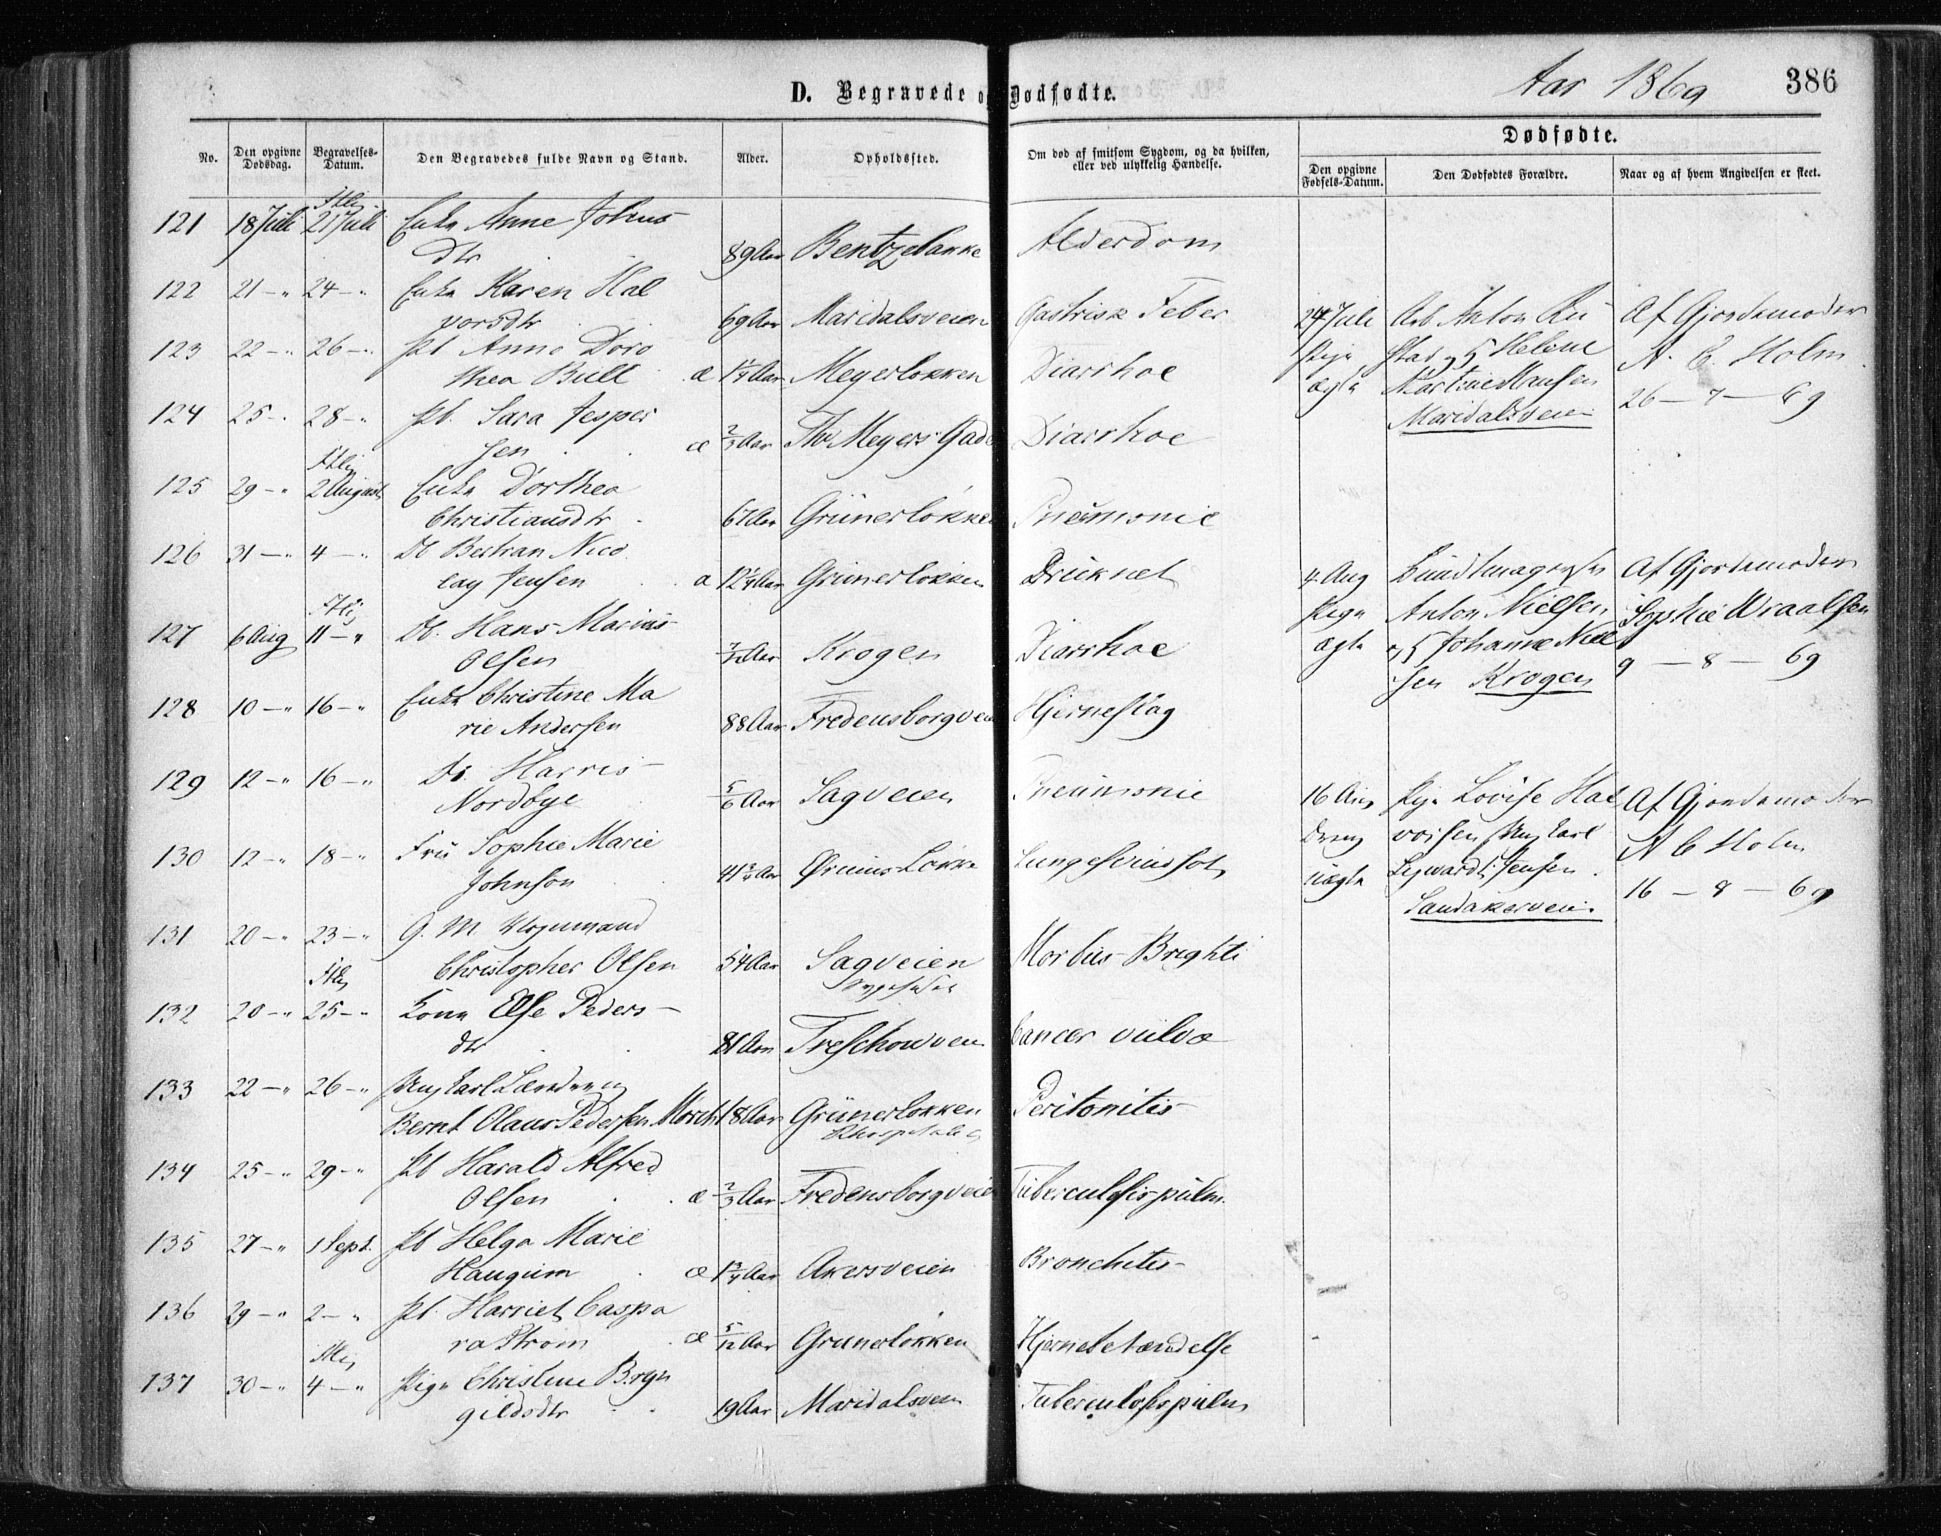 Aar 1869
386
D. Begravede og Dødfødte.
No.
Den opgivne Dødsdag.
Begravelses-Datum.
Den Begravedes fulde Navn og Stand.
Alder.
Opholdssted.
Om død af smitsom Sygdom, og da hvilken, eller ved ulykkelig Hændelse.
Dødfødte.
Den opgivne Fødsels-Datum.
Den Dødfødtes Forældre.
Naar og af hvem Angivelsen er skeet.
121 18 Juli 21 Juli Enke Anne Johns
dtr 89 Aar Bentzebakke Alderdom
122 21 -„ 24 -„ Enke Karen Hal
vorsdtr 69 Aar Maridalsveien Gastrisk Feber
123 22 -„ 26 -„ Pb Anne Doro
thea Bull æ 1¼ Aar Meyerløkken Diarrhoe
124 25 -„ 28 -„ Pb. Sara Jesper
sen æ 2/3 Aar Th. Meyers Gade Diarrhoe
125 29 -„ 2 August Enke Dorthea
Christiansdtr 67 Aar Grünerløkken Pneumonie
126 31 -„ 4 -„ Db Bertran Nico
lay Jensen æ 12¼ Aar Grünerløkken Druknet
127 6 Aug 11 -„ Db. Hans Marius
Olsen Aar Krogen Diarrhoe
128 10 -„ 16 -„ Enke Christine Ma
rie Andersen 88 Aar Fredensborgveien Hjerneslag
129 12 -„ 16 -„ Db. Harris
Nordbye 5/6 Aar Sagveien Pneumonie
130 12 -„ 18 -„ Fru Sophie Marie
Johnson 41¾ Aar Ørenins Løkke Lungesvindsot
131 20 -„ 23 -„ G. M.
Christopher Olsen 54 Aar Sagveien Morbus Brighti
132 20 -„ 25 -„ Kone Else Peders
dtr 81 Aar Treschowveien Cancer vulvæ
133 22 -„ 26 -„ Ungkarl
Bernt Olaus Pedersen Mørch 18 Aar Grünerløkken Peritonitis
134 25 -„ 29 -„ Pb Harald Alfred
Olsen æ 2/3 Aar Fredensborgveien Tuberculosis pulm.
135 27 -„ 1 Sept. Pb Helga Marie
Haugum æ 1¾ Aar Akersveien Bronchitis
136 29 -„ 2 -„ Pb. Harriet Caspa
ra Strom æ 5/12 Aar Grunerløkken Hjernebetændelse
137 30 -„ 4 -„ Pige Christine Bryn
gildsdtr 19 Aar Maridalsveien Tuberculosis pulm
24 Juli Arb Anton Ru Af Gjordemoder
Pige stad og Helene N. C. Holm
ægte Martine Hansen 26 - 7 - 69
Maridalsveien
4 Aug Bundtmager Af Gjordemoder
Pige Anton Nielsen Sophie Wraalsen
ægte og Johanne Niel 9 - 8 - 69
sen Krogen
16 Aug Pige Lovise Hal Af Gjordemoder
Dreng vorsen Ungkarl N C Holm
uægte Sigwardt Jensen 16 - 8 - 69
Sandakerveien